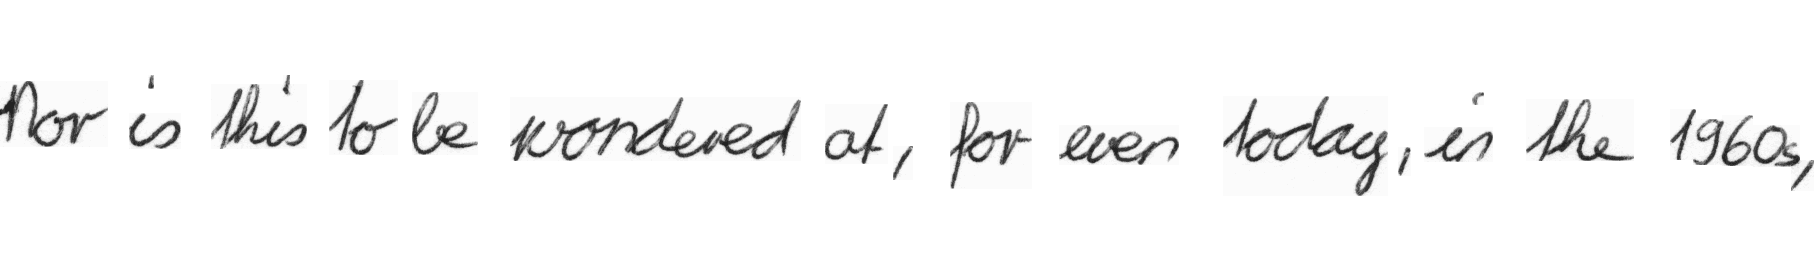 Nor is this to be wondered at, for even today, in the 1960s,